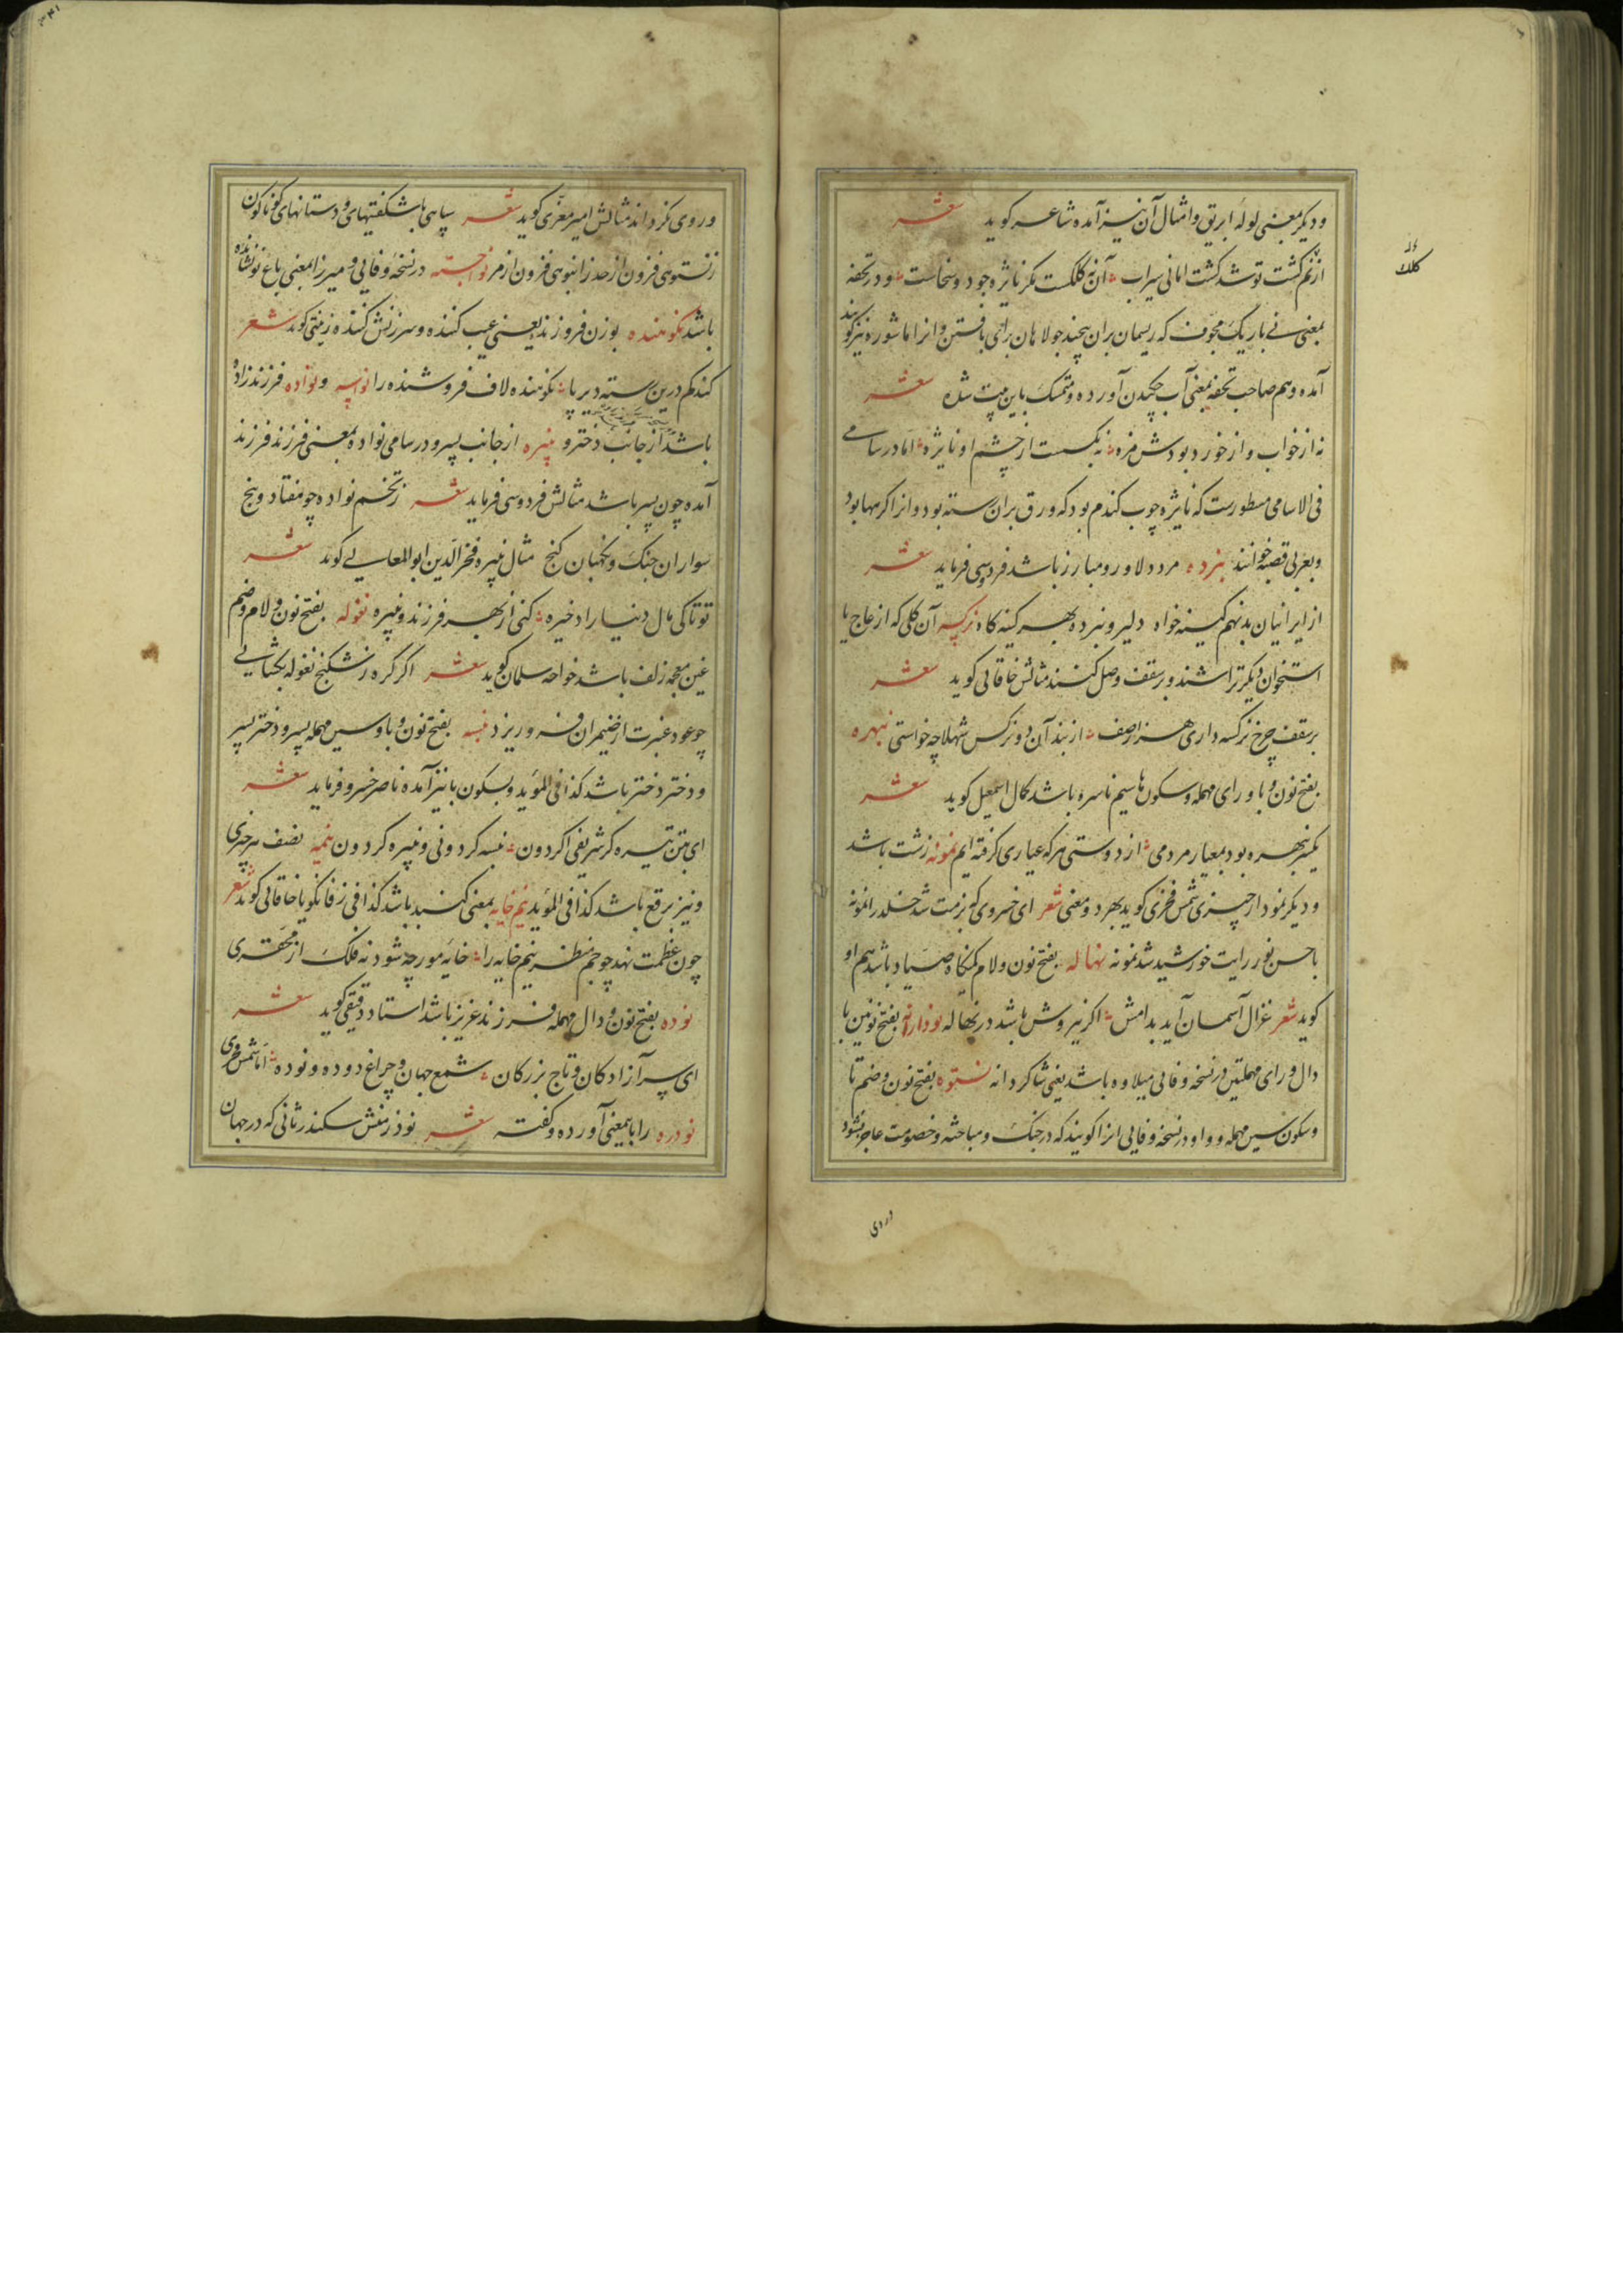 ودیکر بمعنی لوله ابریق و امثال آن نیز آمده شاعر کوید شعر
از نم کشت تو شد کشت امانی سیراب آن نه کلکست مکر نایژه جود و سخاست و در تحفه
بمعنی نی باریک مجوف که ریسمان بران پیچند جولاهان برای بافتن و انرا ماشوره نیز کویند
آمده و هم صاحب تحفه بمعنی آب چکیدن آورده و متمسک باین بیت شده شعر
نه از خواب و از خورد بودش مزه نه بکسست از چشم او نایژه اما در سامی
فی الاسامی مسطورست که نایژه چوب کندم بود که ورق بران بسته بود و انرا کرمها بود
و بعربی قصبه خوانند نبرده مرد دلاور و مبارز باشد فردوسی فرماید شعر
از ایرانیان بد نهم کینه خواه دلیر و نبرده بهر کینه کاه نرکسه آن کلی که از عاج یا
استخوان دیکر تراشند و بر سقف وصل کنند مثالش خاقانی کوید شعر
بر سقف چرخ نرکسه داری هزار صف از بند آن دو نرکس شهلا چه خواستی نبهره
بفتح نون و با و رای مهمله و سکون ها سیم ناسره باشد کمال اسمعیل کوید شعر
یکسر نبهره بود بمعیار مردمی از دوستی هرکه عیاری کرفته ایم نمونه زشت باشد
و دیکر نمودار چیزی شمس فخری کوید بهر دو معنی شعر ای خسروی که بزمت شد خلد را نمونه
با حسن نور رایت خورشید شد نمونه نهاله بفتح نون و لام کمینکاه صیاد باشد هم او
کوید شعر غزال آسمان آید بدامش اکر نیروش باشد در نهاله نودارانه بفتح نونین با
دال و رای مهملتین در نسخه وفائی میلاوه باشد یعنی شاکردانه نستوه بفتح نون و ضم تا
و سکون سین مهمله و واو در نسخه وفایی انرا کویند که در جنک و مباحثه و خصومت عاجز نشود
کلک
و روی نکرداند مثالش امیر معزی کوید شعر سپاهی با شکفتیهای و دستانهای کوناکون
ز نستوهی فزون از حد ز انبوهی فزون از مر نواجسته در نسخه وفایی و میرزا بمعنی باغ نونشانده
باشد نکوهنده بوزن فروزنده یعنی عیب کننده و سرزنش کننده زینتی کوید شعر
کندکم درین رسته دیر پا نکوهنده لاف فروشنده را نوسه و نواده فرزندزاده
باشد از جانب دختر و نبیره از جانب پسر و در سامی نواده بمعنی فرزند فرزند
آمده چون پسر باشد مثالش فردوسی فرماید شعر ز تخم نواده چو هفتاد و پنج
سواران جنک و نکهبان کنج مثال نبیره فخر الدین ابوالمعالی کوید شعر
تو تا کی مال دنیا را ذخیره کنی از بهر فرزند و نبیره نغوله بفتح نون و لام و ضم
غین معجمه زلف باشد خواجه سلمان کوید شعر اکر کره ز شکنج نغوله بکشائی
چو عود عنبرت از ضیمران فرو ریزد نبسه بفتح نون و با و سین مهمله پسر و دختر پسر
و دختر دختر باشد کذا فی المؤید و بسکون با نیز آمده ناصر خسرو فرماید شعر
ای تن تیره کر شریفی اکر دون نبسه کردونی و نبیره کردون نیمه نصف هر چیزی
و نیز برقع باشد کذا فی المؤید نیم خایه بمعنی کنبد باشد کذا فی زفانکویا خاقانی کوید شعر
چون عظمت نهد چو جم منظر نیم خایه را خایه مورچه شود نه فلک از محقری
نوده بفتح نون و دال مهمله فرزند عزیز باشد استاد دقیقی کوید شعر
ای سر آزادکان و تاج بزرکان شمع جهان و چراغ دوده و نوده اما شمس فخری
نودره را باین معنی آورده و کفته شعر نوذر منش سکندر ثانی که در جهان